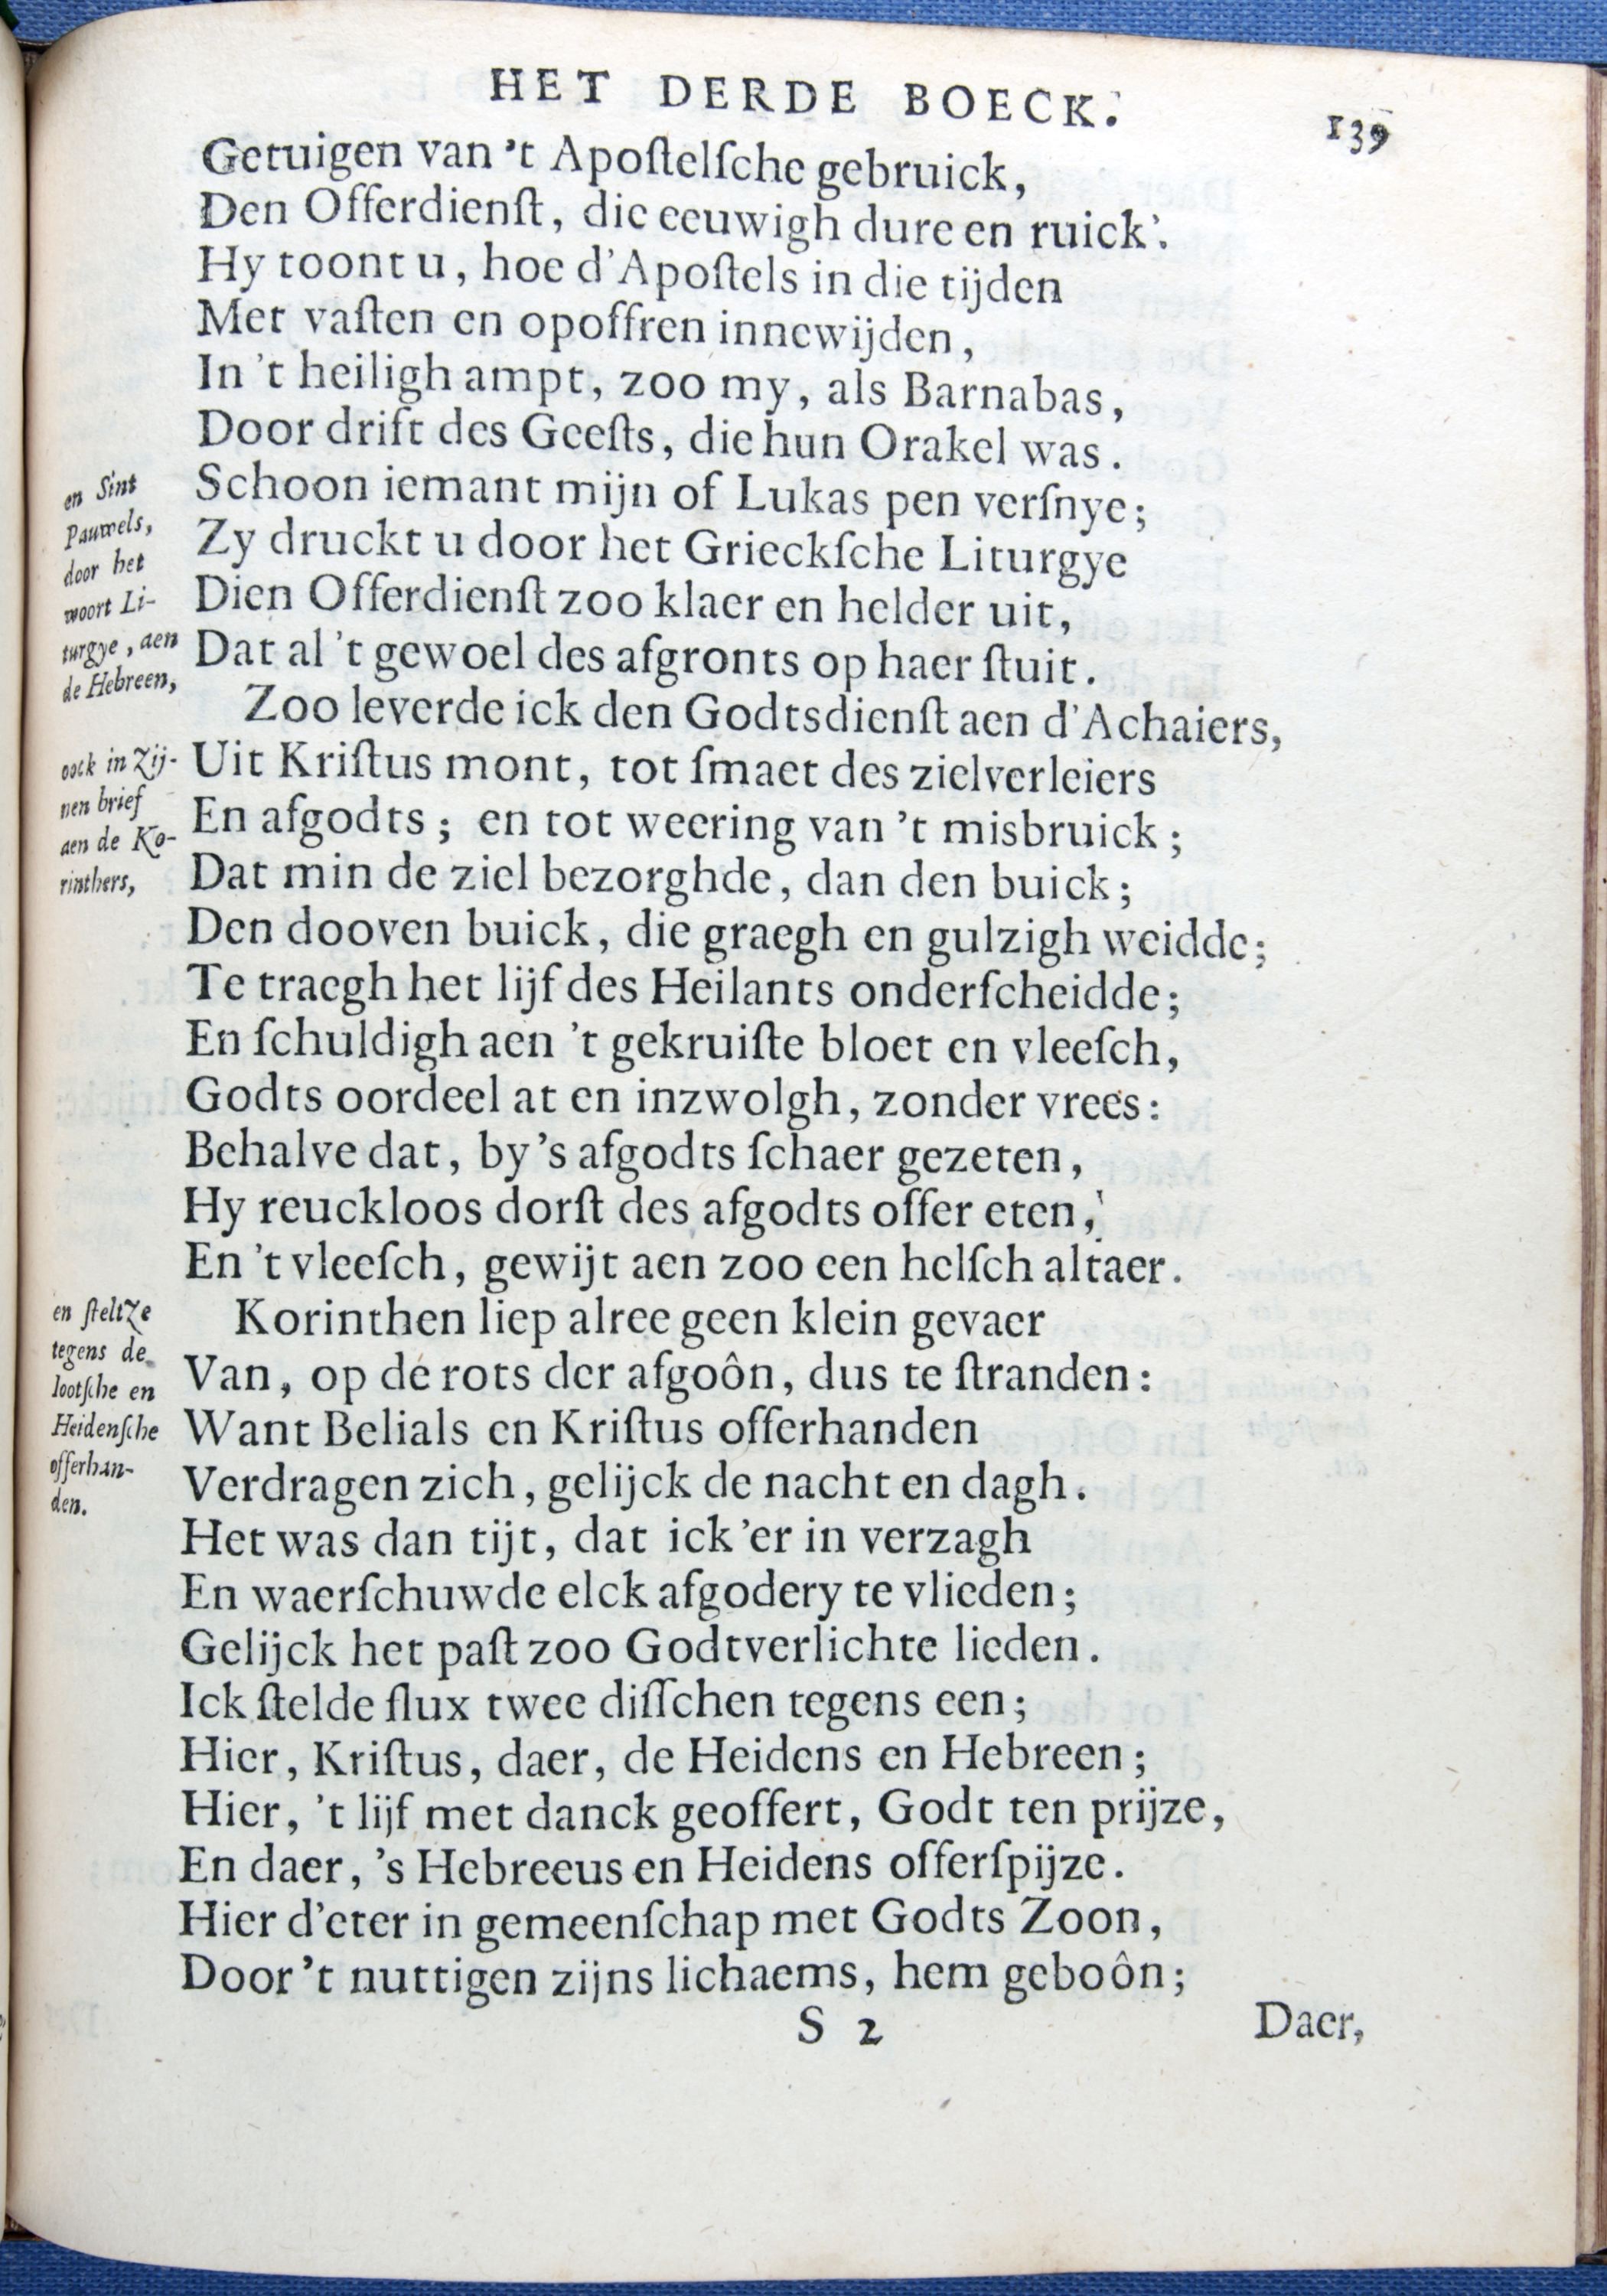 HET DERDE BOECK. 139
Getuigen van 't Apoſtelſche gebruick,
Den Offerdienſt, die eeuwigh dure en ruick'.
Hy toont u, hoe d'Apoſtels in die tijden
Met vaſten en opoffren innewijden,
In 't heiligh ampt, zoo my, als Barnabas,
Door drift des Geeſts, die hun Orakel was.
en Sint
Pauwels,
door het
woort Li-
turgye, aen
de Hebreen,
Schoon iemant mijn of Lukas pen verſnye;
Zy druckt u door het Grieckſche Liturgye
Dien Offerdienſt zoo klaer en helder uit,
Dat al 't gewoel des afgronts op haer ſtuit.
Zoo leverde ick den Godtsdienſt aen d'Achaiers,
oock in zij-
nen brief
aen de Ko-
rinthers,
Uit Kriſtus mont, tot ſmaet des zielverleiers
En afgodts; en tot weering van 't misbruick;
Dat min de ziel bezorghde, dan den buick;
Den dooven buick, die graegh en gulzigh weidde;
Te traegh het lijf des Heilants onderſcheidde;
En ſchuldigh aen 't gekruiſte bloet en vleeſch,
Godts oordeel at en inzwolgh, zonder vrees:
Behalve dat, by 's afgodts ſchaer gezeten,
Hy reuckloos dorſt des afgodts offer eten,
En 't vleeſch, gewijt aen zoo een helſch altaer.
en ſteltze
tegens de
Iootſche en
Heidenſche
offerhan-
den.
Korinthen liep alree geen klein gevaer
Van, op de rots der afgoôn, dus te ſtranden:
Want Belials en Kriſtus offerhanden
Verdragen zich, gelijck de nacht en dagh.
Het was dan tijt, dat ick 'er in verzagh
En waerſchuwde elck afgodery te vlieden;
Gelijck het paſt zoo Godtverlichte lieden.
Ick ſtelde flux twee diſſchen tegens een;
Hier, Kriſtus, daer, de Heidens en Hebreen;
Hier, 't lijf met danck geoffert, Godt ten prijze,
En daer, 's Hebreeus en Heidens offerſpijze.
Hier d'eter in gemeenſchap met Godts Zoon,
Door 't nuttigen zijns lichaems, hem geboôn;
S 2 Daer,